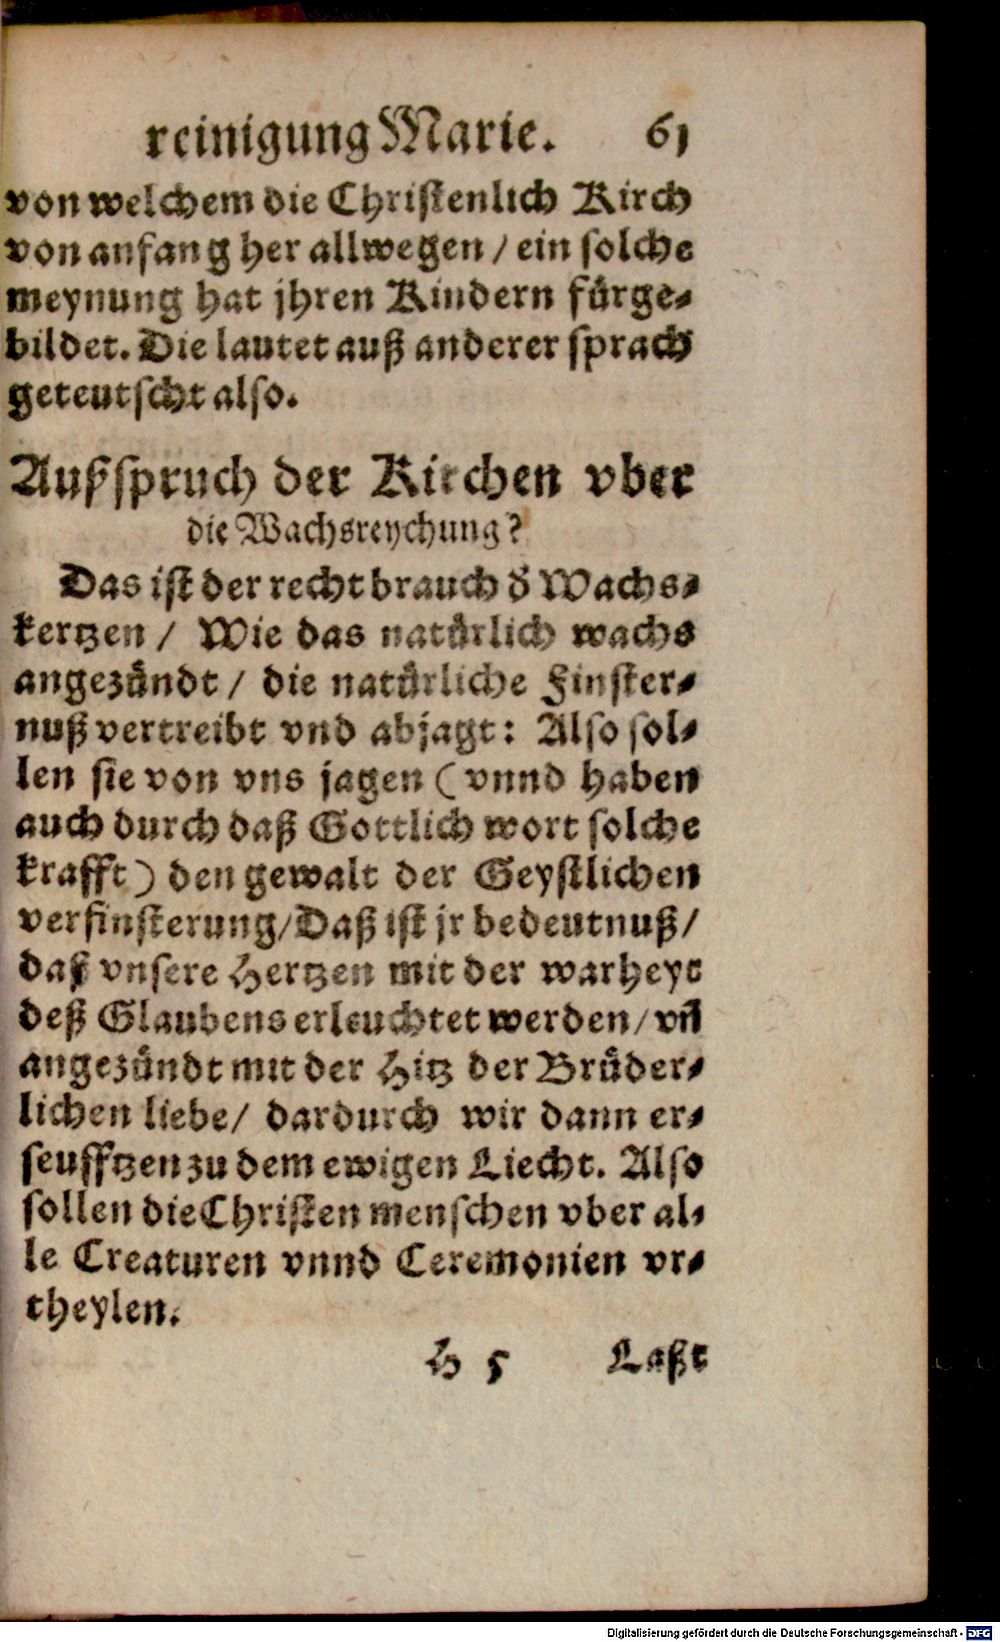 reinigung Marie. 61
von welchem die Christenlich Kirch
von anfang her allwegen / ein solche
meynung hat jhren Kindern fürge-
bildet. Die lautet auß anderer sprach
geteutscht also.
Außspruch der Kirchen vber
die Wachsreychung?
Das ist der recht brauch d̕ Wachs-
kertzen / Wie das natürlich wachs
angezündt / die natürliche Finster-
nuß vertreibt vnd abjagt: Also sol-
len sie von vns jagen (vnnd haben
auch durch daß Gottlich wort solche
krafft) den gewalt der Geystlichen
verfinsterung/Daß ist jr bedeutnuß/
daß vnsere Hertzen mit der warheyt
deß Glaubens erleuchtet werden/ vn̄
angezündt mit der Hitz der Brüder-
lichen liebe/ dardurch wir dann er-
seufftzen zu dem ewigen Liecht. Also
sollen die Christen menschen vber al-
le Creaturen vnnd Ceremonien vr-
theylen.
H 5 Laßt
Digitalisierung gefördert durch die Deutsche Forschungsgemeinschaft - DFG